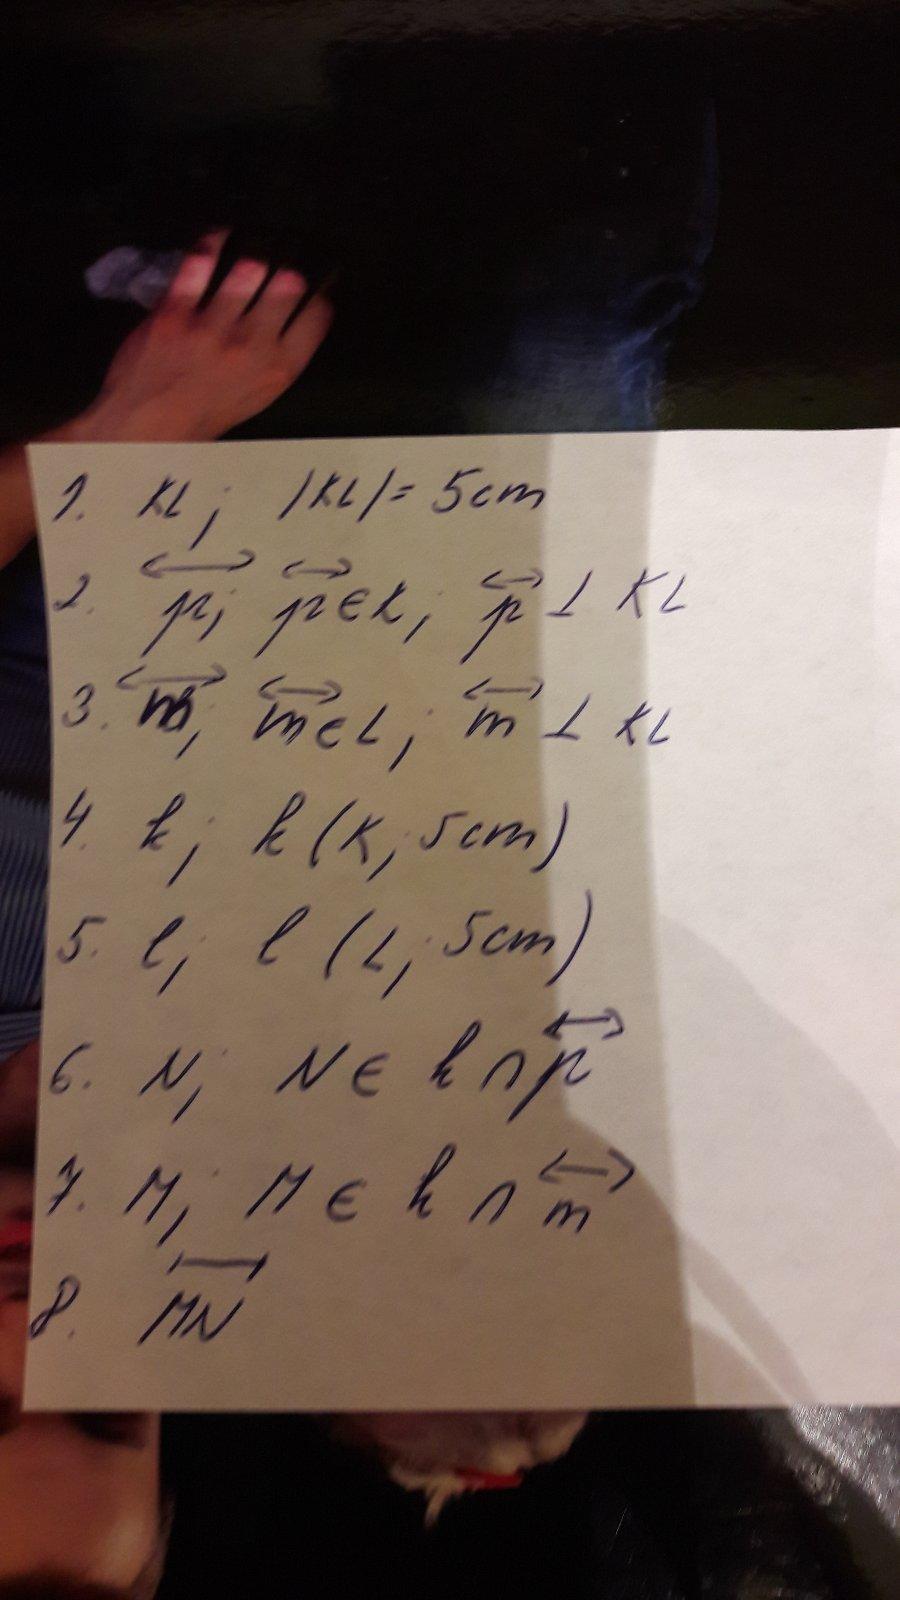 1. KL; |KL| = 5cm
2. p; p ∈ K; p ⊥ KL
3. m; m ∈ L; m ⊥ KL
4. k; k (K; 5cm)
5. l; l (L; 5cm)
6. N; N ∈ k ∩ p
7. M; M ∈ k ∩ m
8. MN